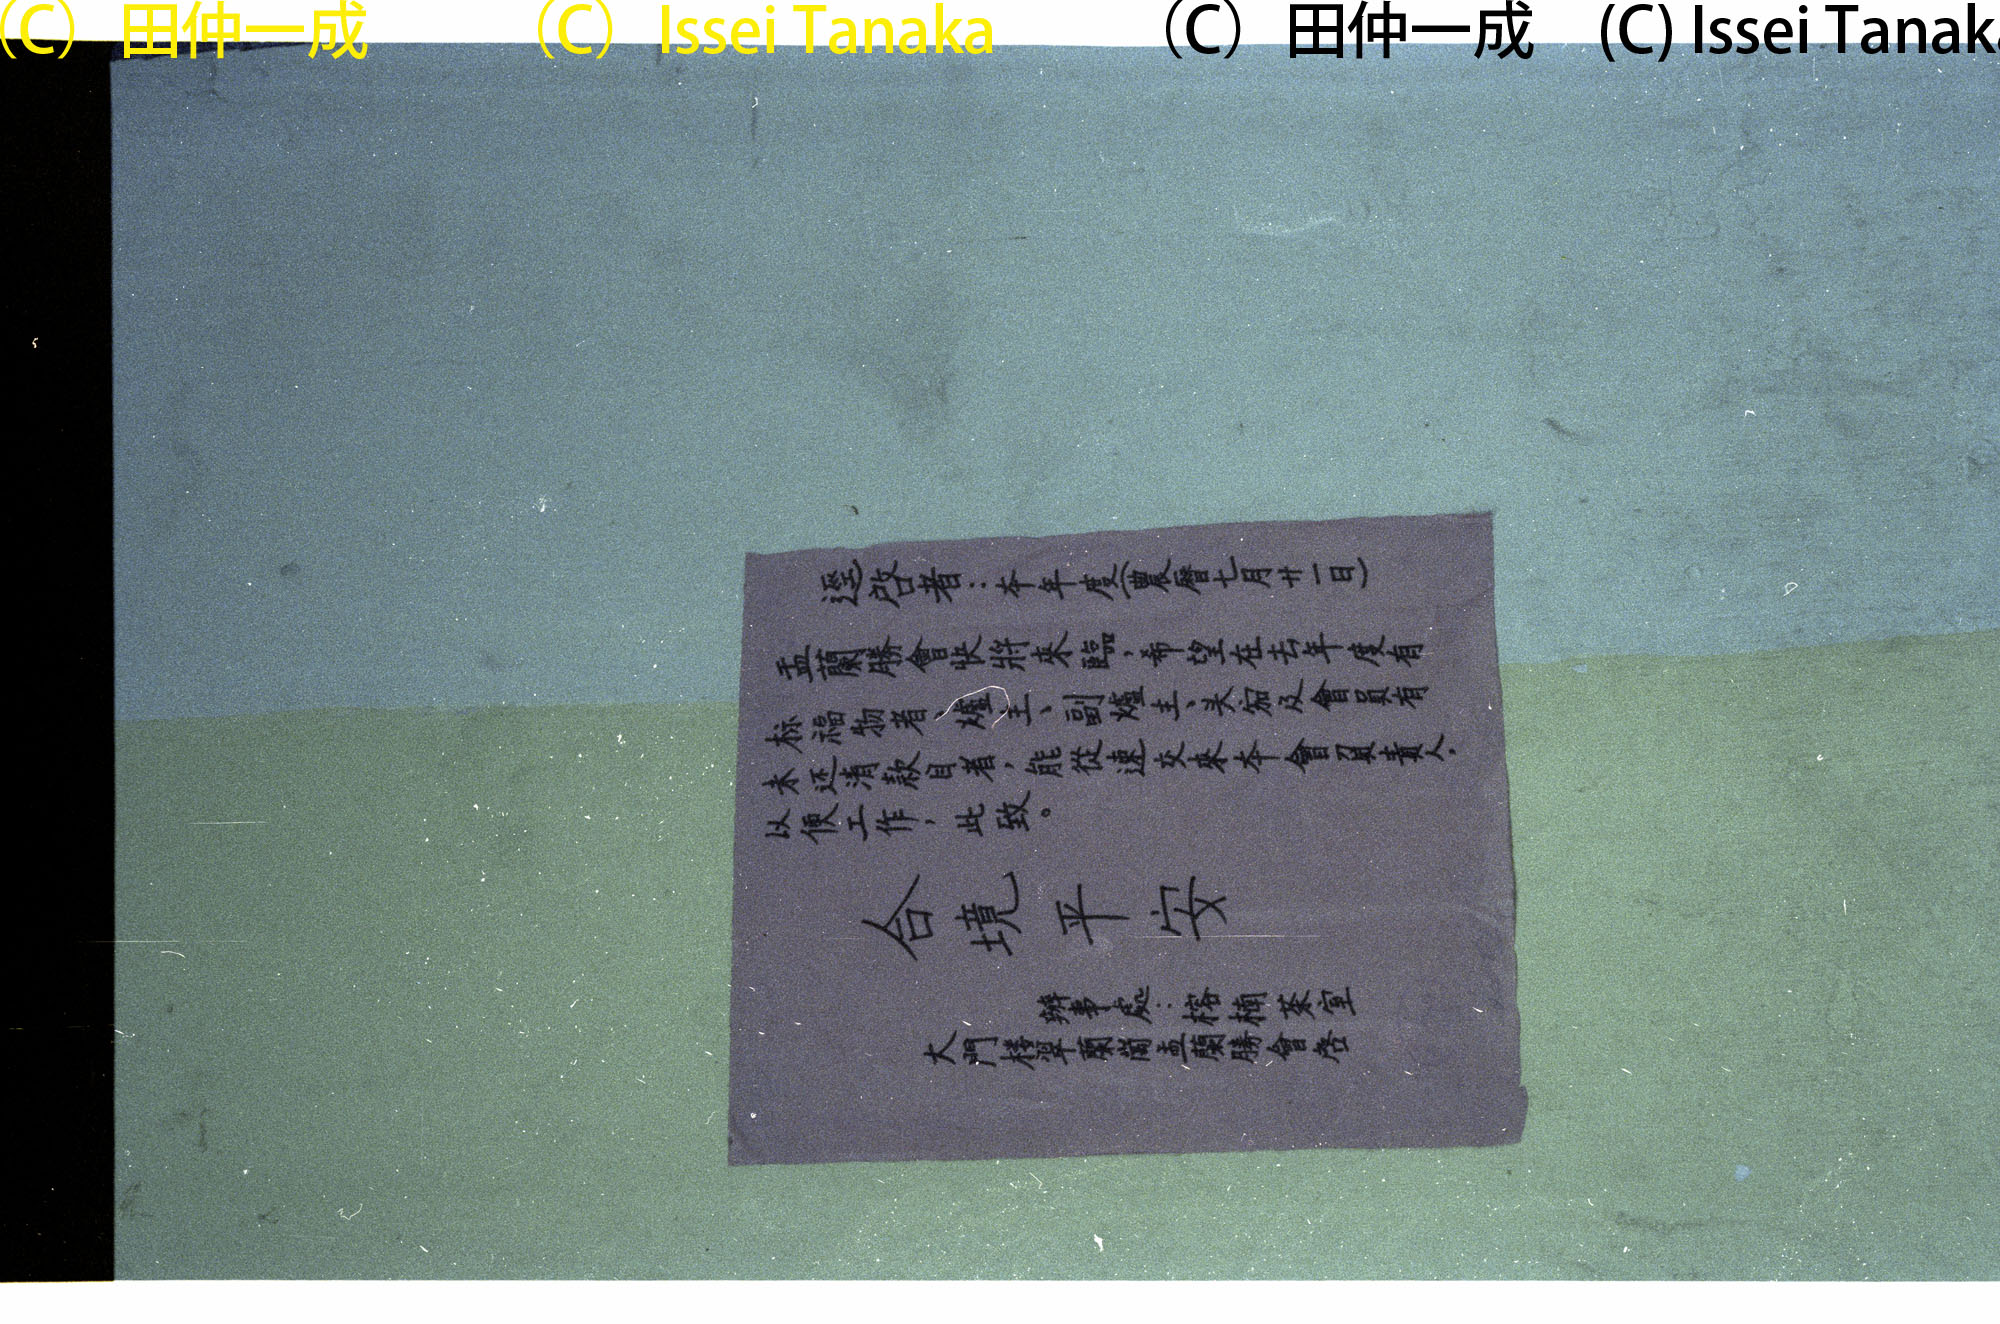 （C） 田仲一成 （C） Issei Tanaka （C） 田仲一成 (C) Issei Tanaka
逕啟者：本年度(農曆七月廿一日)
盂蘭勝會快將來臨，希望在去年度有
标福物者、爐主、副爐主、头家及會員有
未还清款目者，能從速交來本會負責人，
以便工作，此致。
合境平安
辦事處：榕楠茶室
大門楼翠蘭崗盂蘭勝會启